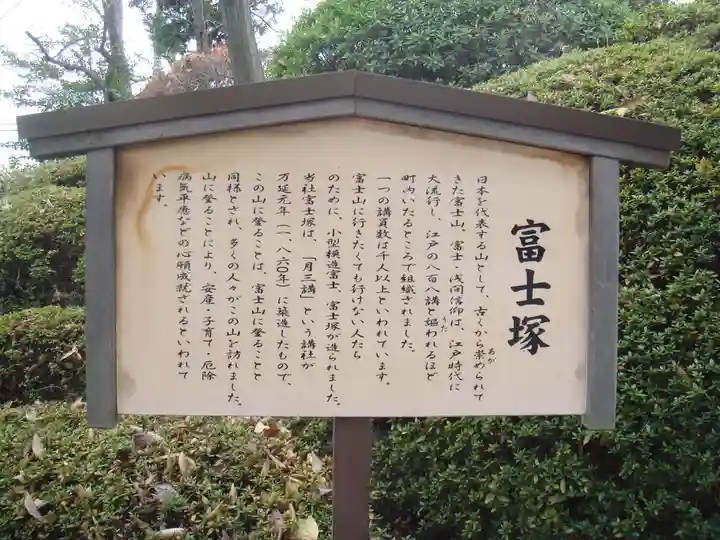 富士塚
日本を代表する山として、古くから崇められて
あが
きた富士山。富士(浅間)信仰は、江戸時代に
大流行し、江戸の八百八講と謳われるほど
うた
町内いたるところで組織されました。
一つの講員数は千人以上といわれています。
富士山に行きたくても行けない人たち
のために、小型模造富士、富士塚が造られました。
当社富士塚は、「月三講」という講社が
万延元年(一八六〇年)に築造したもので、
この山に登ることは、富士山に登ることと
同様とされ、多くの人々がこの山を訪れました。
山に登ることにより、安産・子育て・厄除
病気平癒などの心願成就されるといわれて
います。